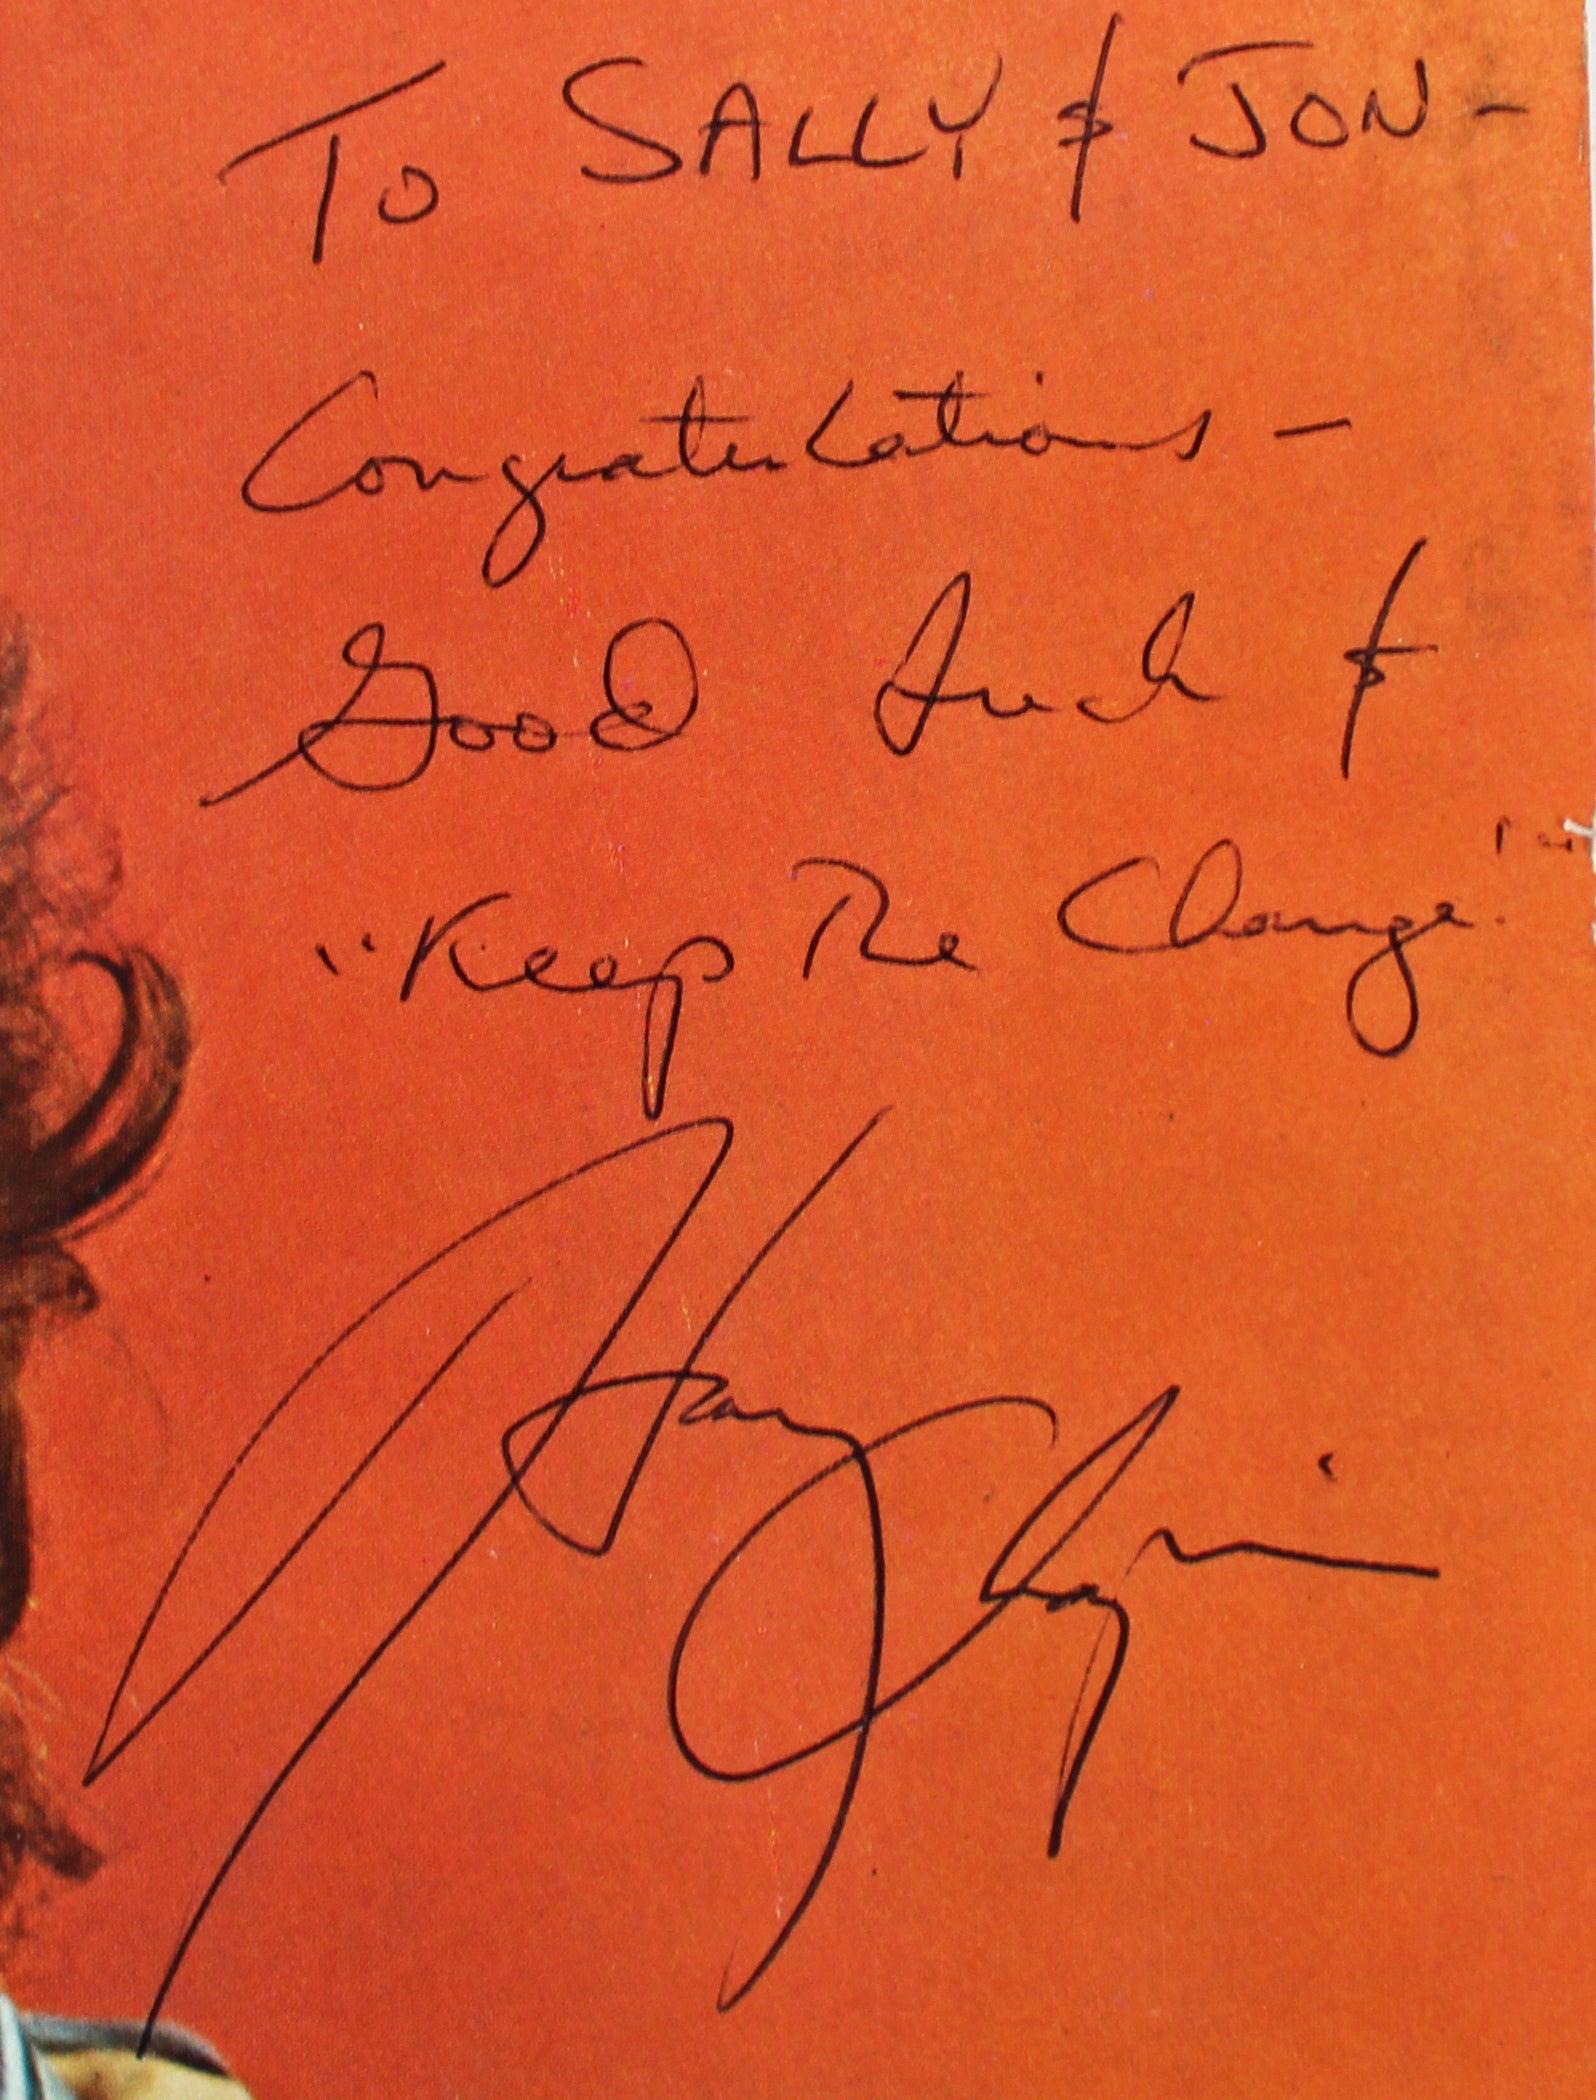 To SALLY & JON -
Congratulations -
Good Luck &
"Keep The Change"
Harry Chapin